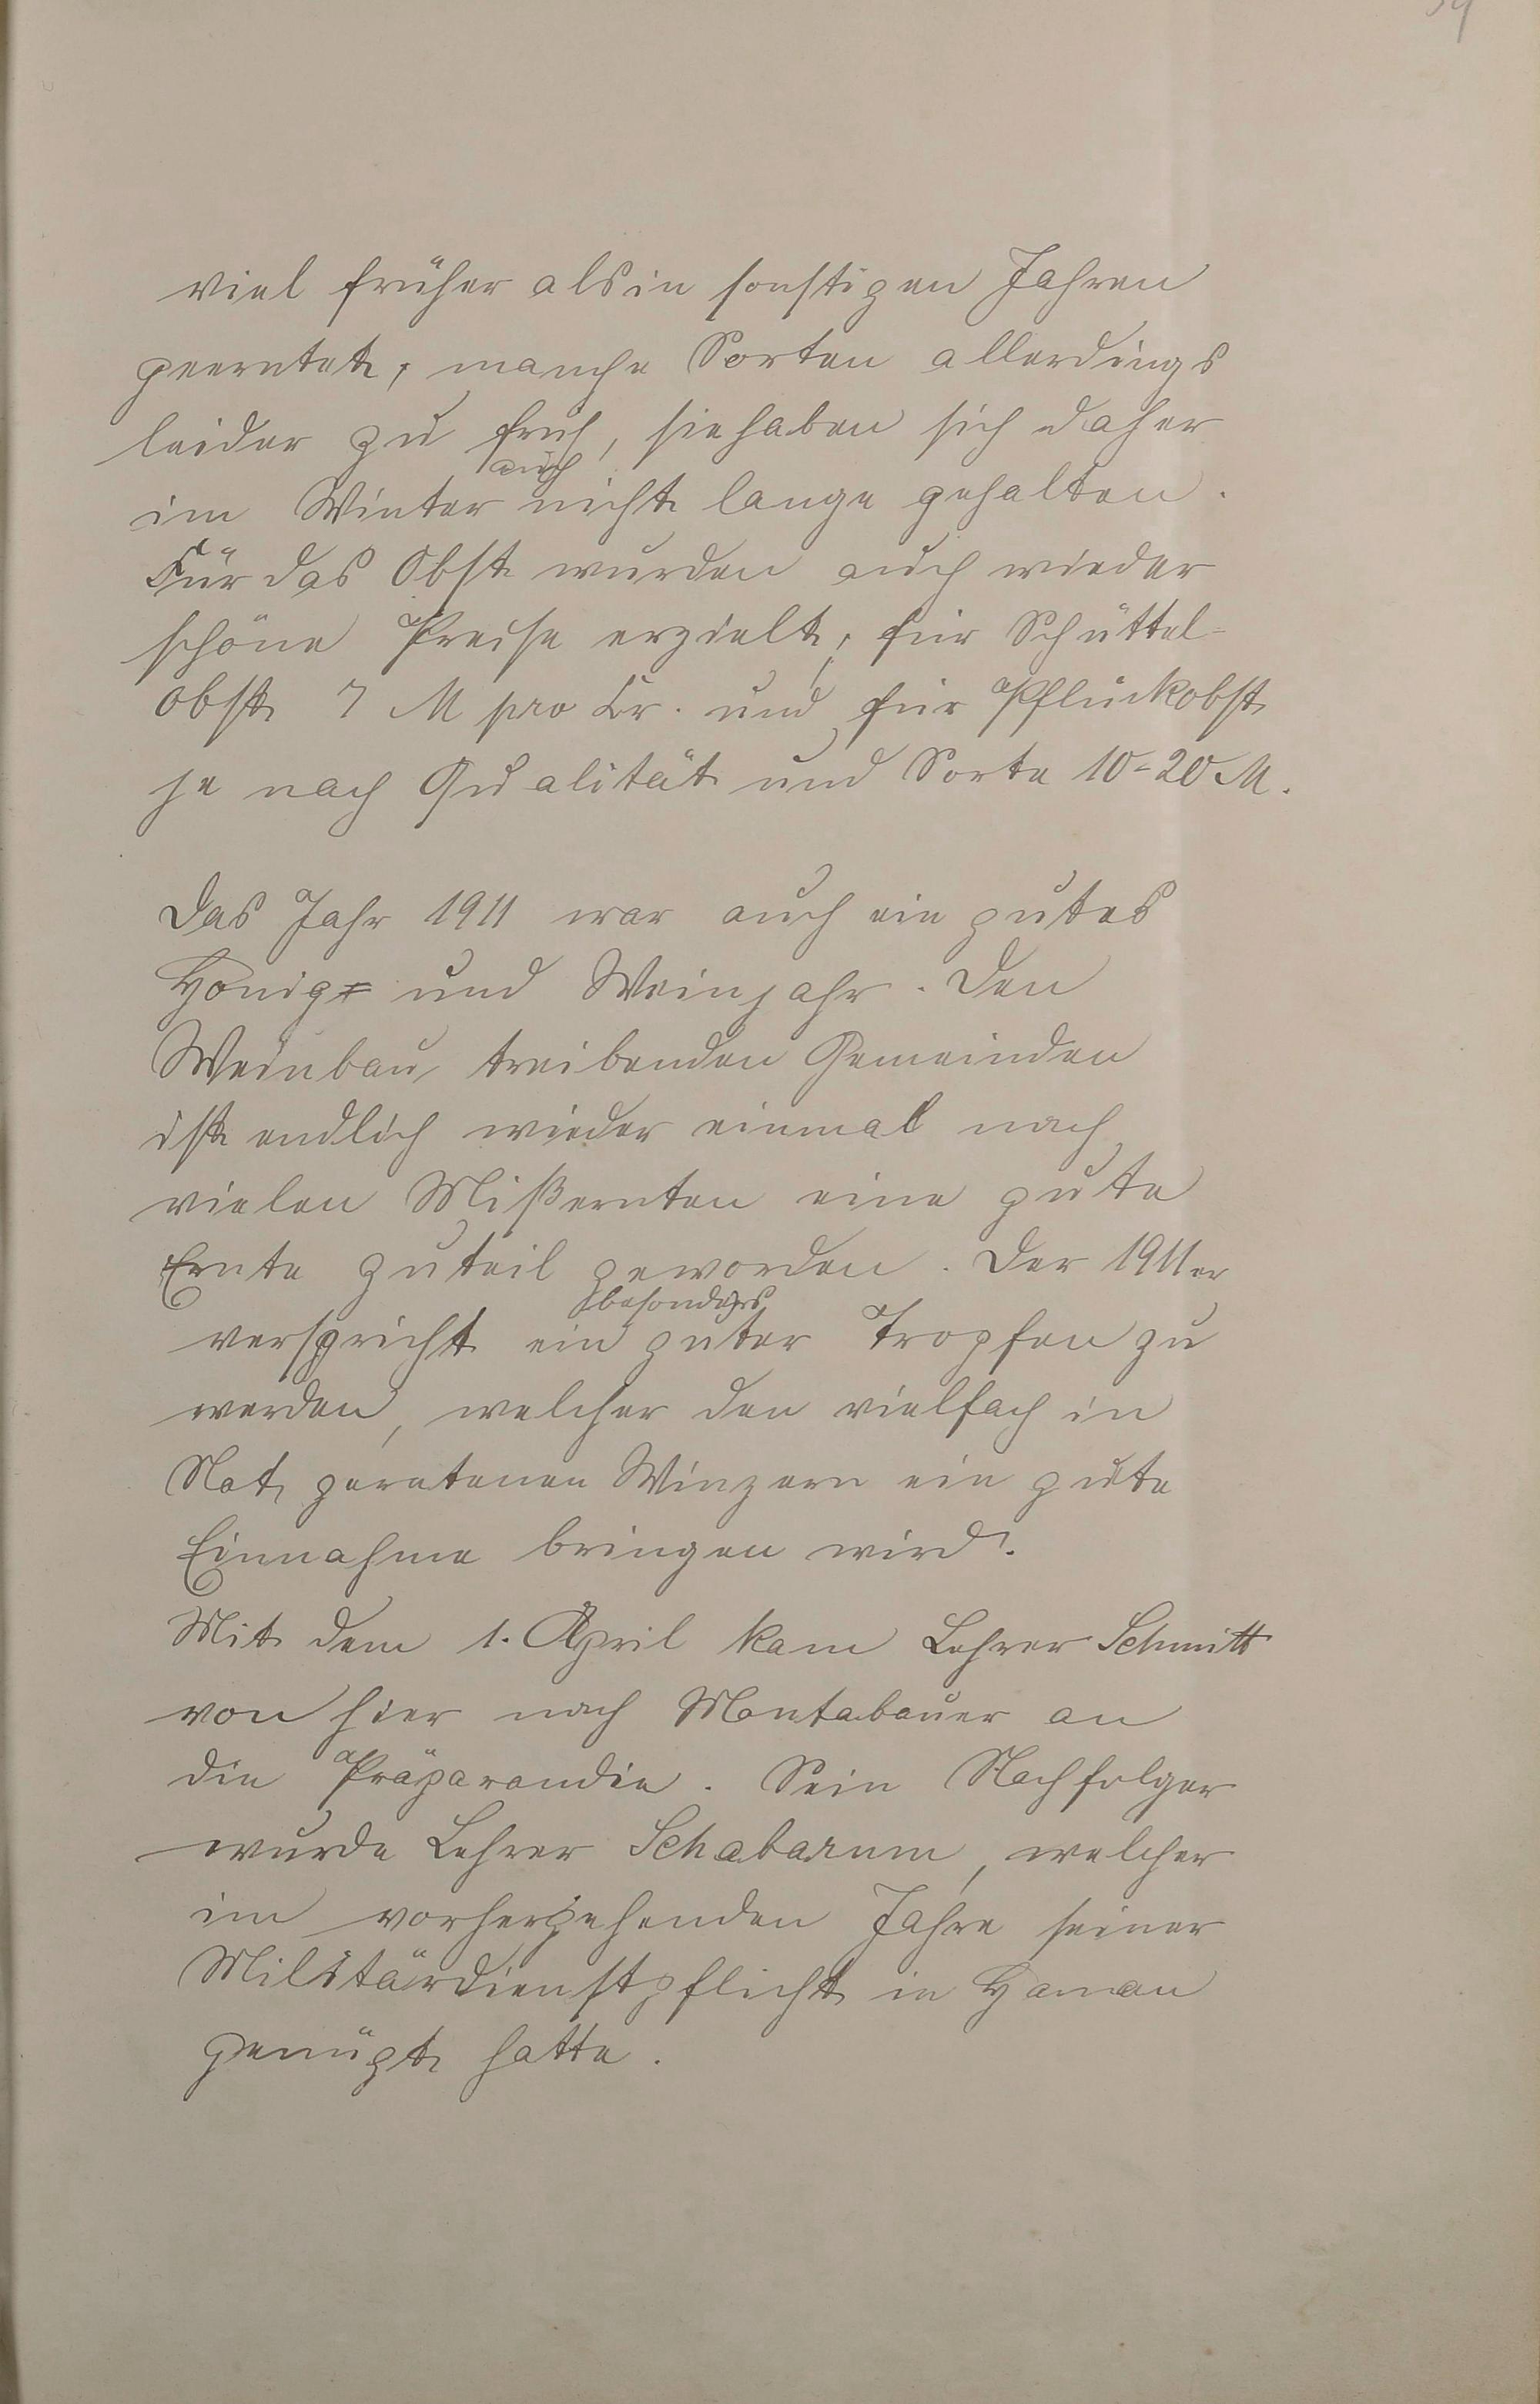 viel früher als in sonstigen Jahren
geerntet, manche Sorten allerdings
leider zu früh, sie haben sich daher
auch
im Winter nicht lange gehalten.
Für das Obst wurden auch wieder
schöne Preise erzielt, für Schüttel-
obst 7 M pro Ctr. und für Pflückobst
je nach Qualität und Sorte 10-20 M.
Das Jahr 1911 war auch ein gutes
Honig- und Weinjahr. Den
Weinbau treibenden Gemeinden
ist endlich wieder einmal nach
vielen Mißernten eine gute
Ernte zuteil geworden. Der 1911er
besonders
verspricht ein guter Tropfen zu
werden, welcher den vielfach in
Not geratenen Winzern ein gute
Einnahme bringen wird.
Mit dem 1. April kam Lehrer Schmitt
von hier nach Montabauer an
die Präparandie. Sein Nachfolger
wurde Lehrer Schabarum, welcher
im vorhergehenden Jahre seiner
Militärdienstpflicht in Hanau
genügt hatte.